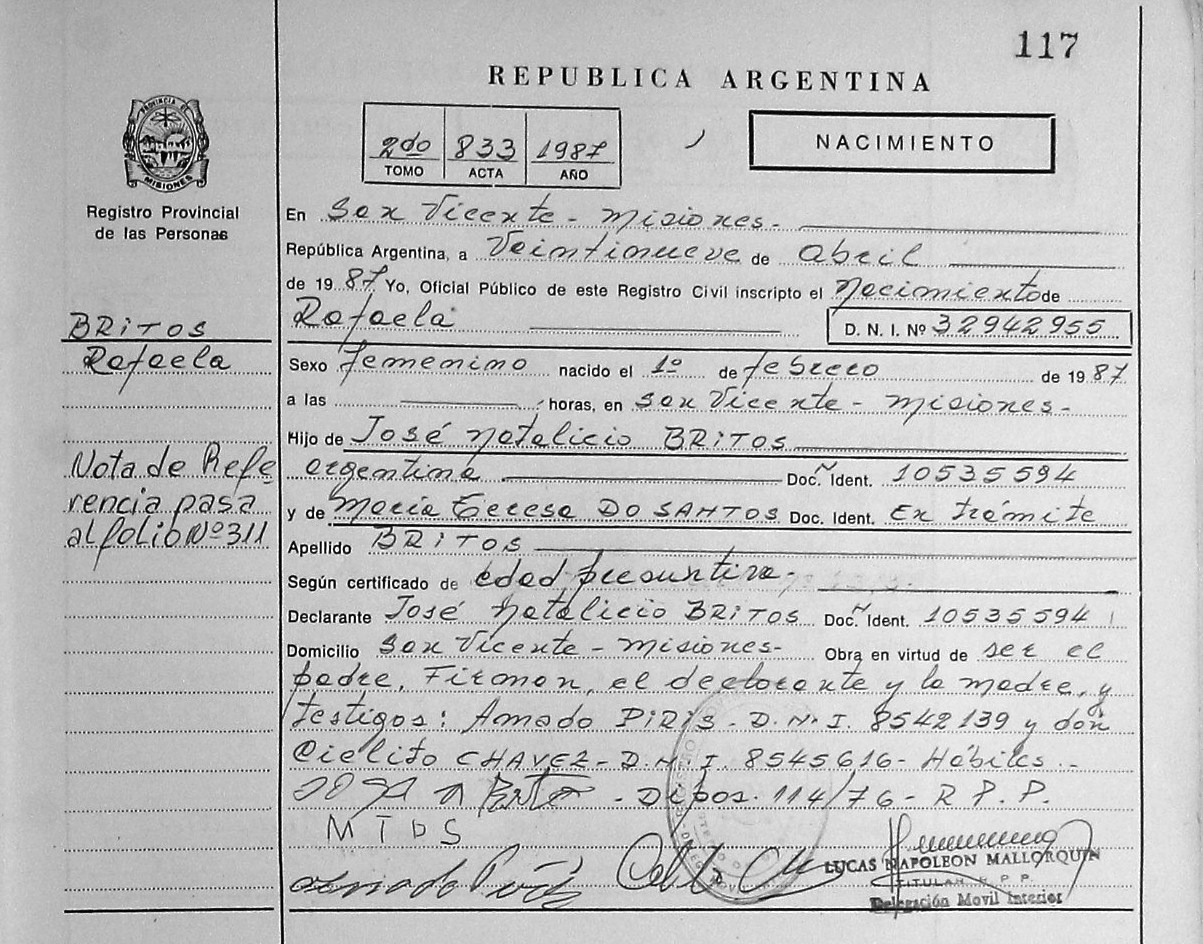 117
REPUBLICA ARGENTINA
PROVINCIA DE MISIONES
2do 833 1987
TOMO ACTA AÑO
NACIMIENTO
Registro Provincial
de las Personas
BRITOS
Rafaela
Nota de Refe
rencia pasa
al folio Nº 311
En San Vicente - Misiones -
República Argentina, a Veintinueve de abril
de 1987 Yo, Oficial Público de este Registro Civil inscripto el Nacimiento de
Rafaela D. N. I. Nº 32942955
Sexo femenino nacido el 1º de febrero de 1987
a las horas, en San Vicente - Misiones -
Hijo de José Natalicio BRITOS
argentina Doc. Ident. 10535594
y de María Teresa DO SANTOS Doc. Ident. En trámite
Apellido BRITOS
Según certificado de edad presuntiva -
Declarante José Natalicio BRITOS Doc. Ident. 10535594
Domicilio San Vicente - Misiones - Obra en virtud de ser el
padre, Firman, el declarante y la madre, y
testigos: Amado PIRIS - D.N.I. 8542139 y don
Cielito CHAVEZ - D.N.I. 8545616 - Hábiles -
- Dispos. 114/76 - R.P.P.
M T D S
LUCAS NAPOLEON MALLORQUIN
TITULAR R. P. P.
Delegación Movil Interior